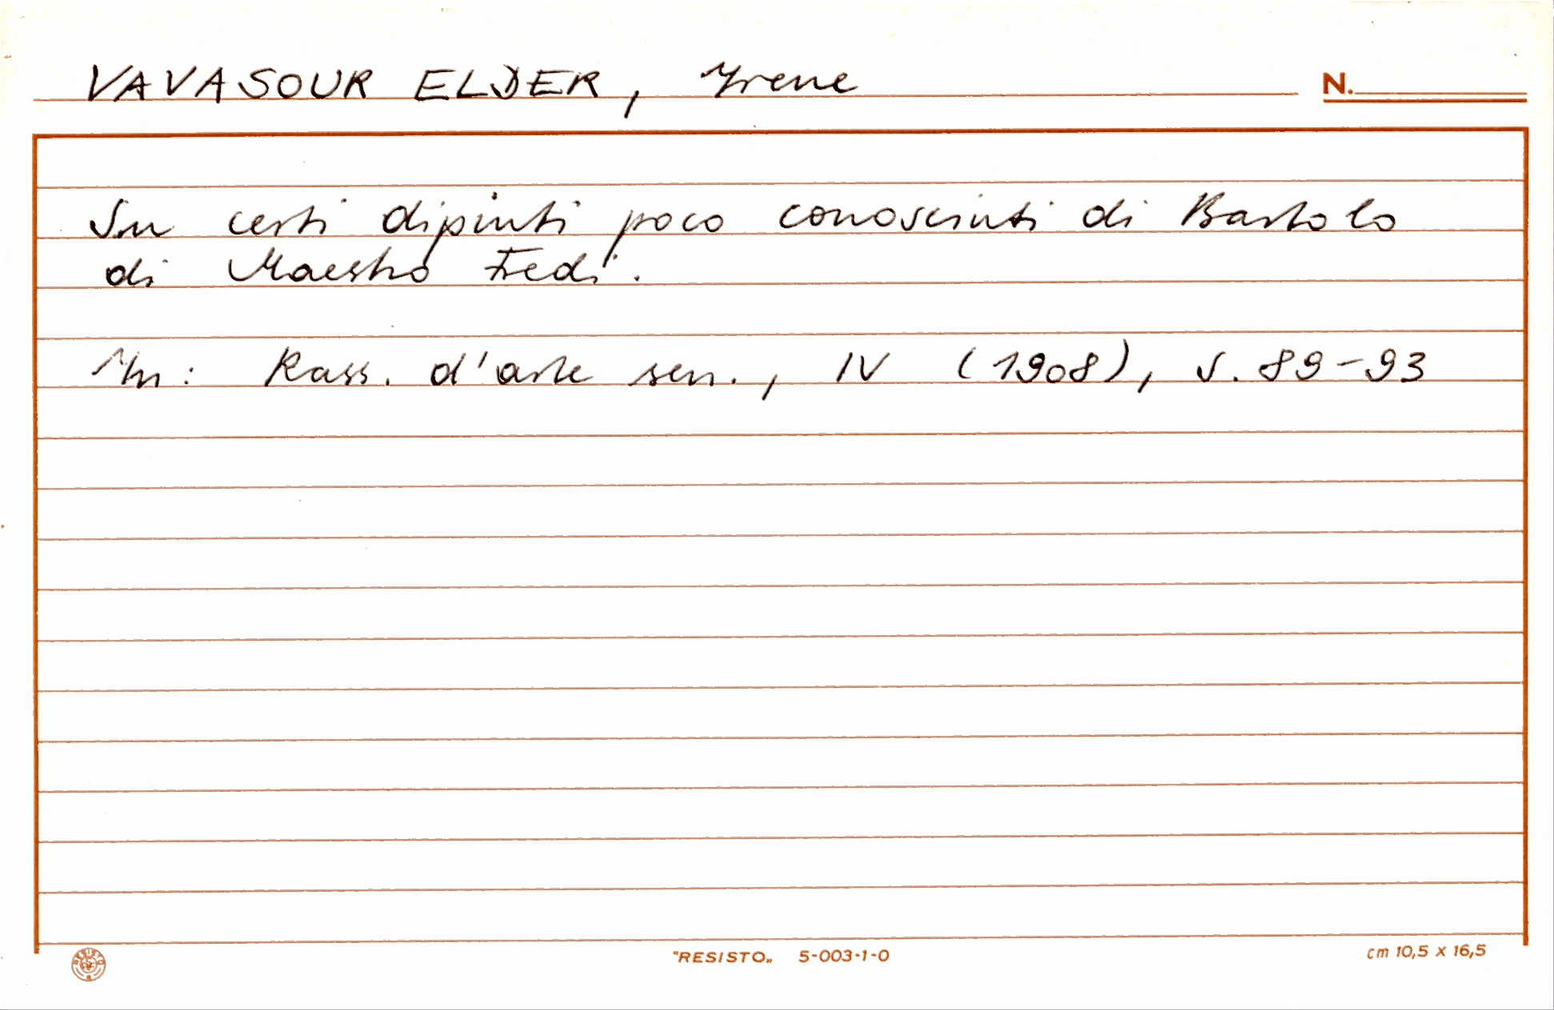 VAVASOUR ELDER, Yrene
N.
Su certi dipinti poco conosciuti di Bartolo
di Maestro Fredi.
In: Rass. d'arte sen., IV (1908), S. 89-93
"RESISTO„ 5-003-1-0
cm 10,5 x 16,5
RESISTO